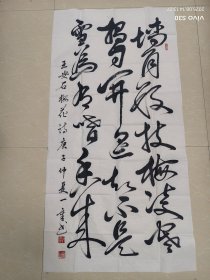 墙角数枝梅凌寒
独自开遥知不是
雪为有暗香来
王安石梅花诗庚子仲夏一